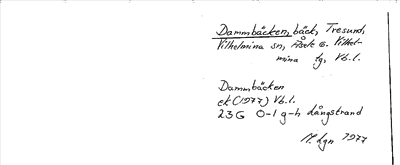 Dammbäcken, bäck, Tresund,
Vilhelmina sn, Åsele o. Vilhel-
mina tg, Vb.l.
Dammbäcken
ek (1977) Vb.l.
23G 0-1 g-h Långstrand
M. Lgn 1977